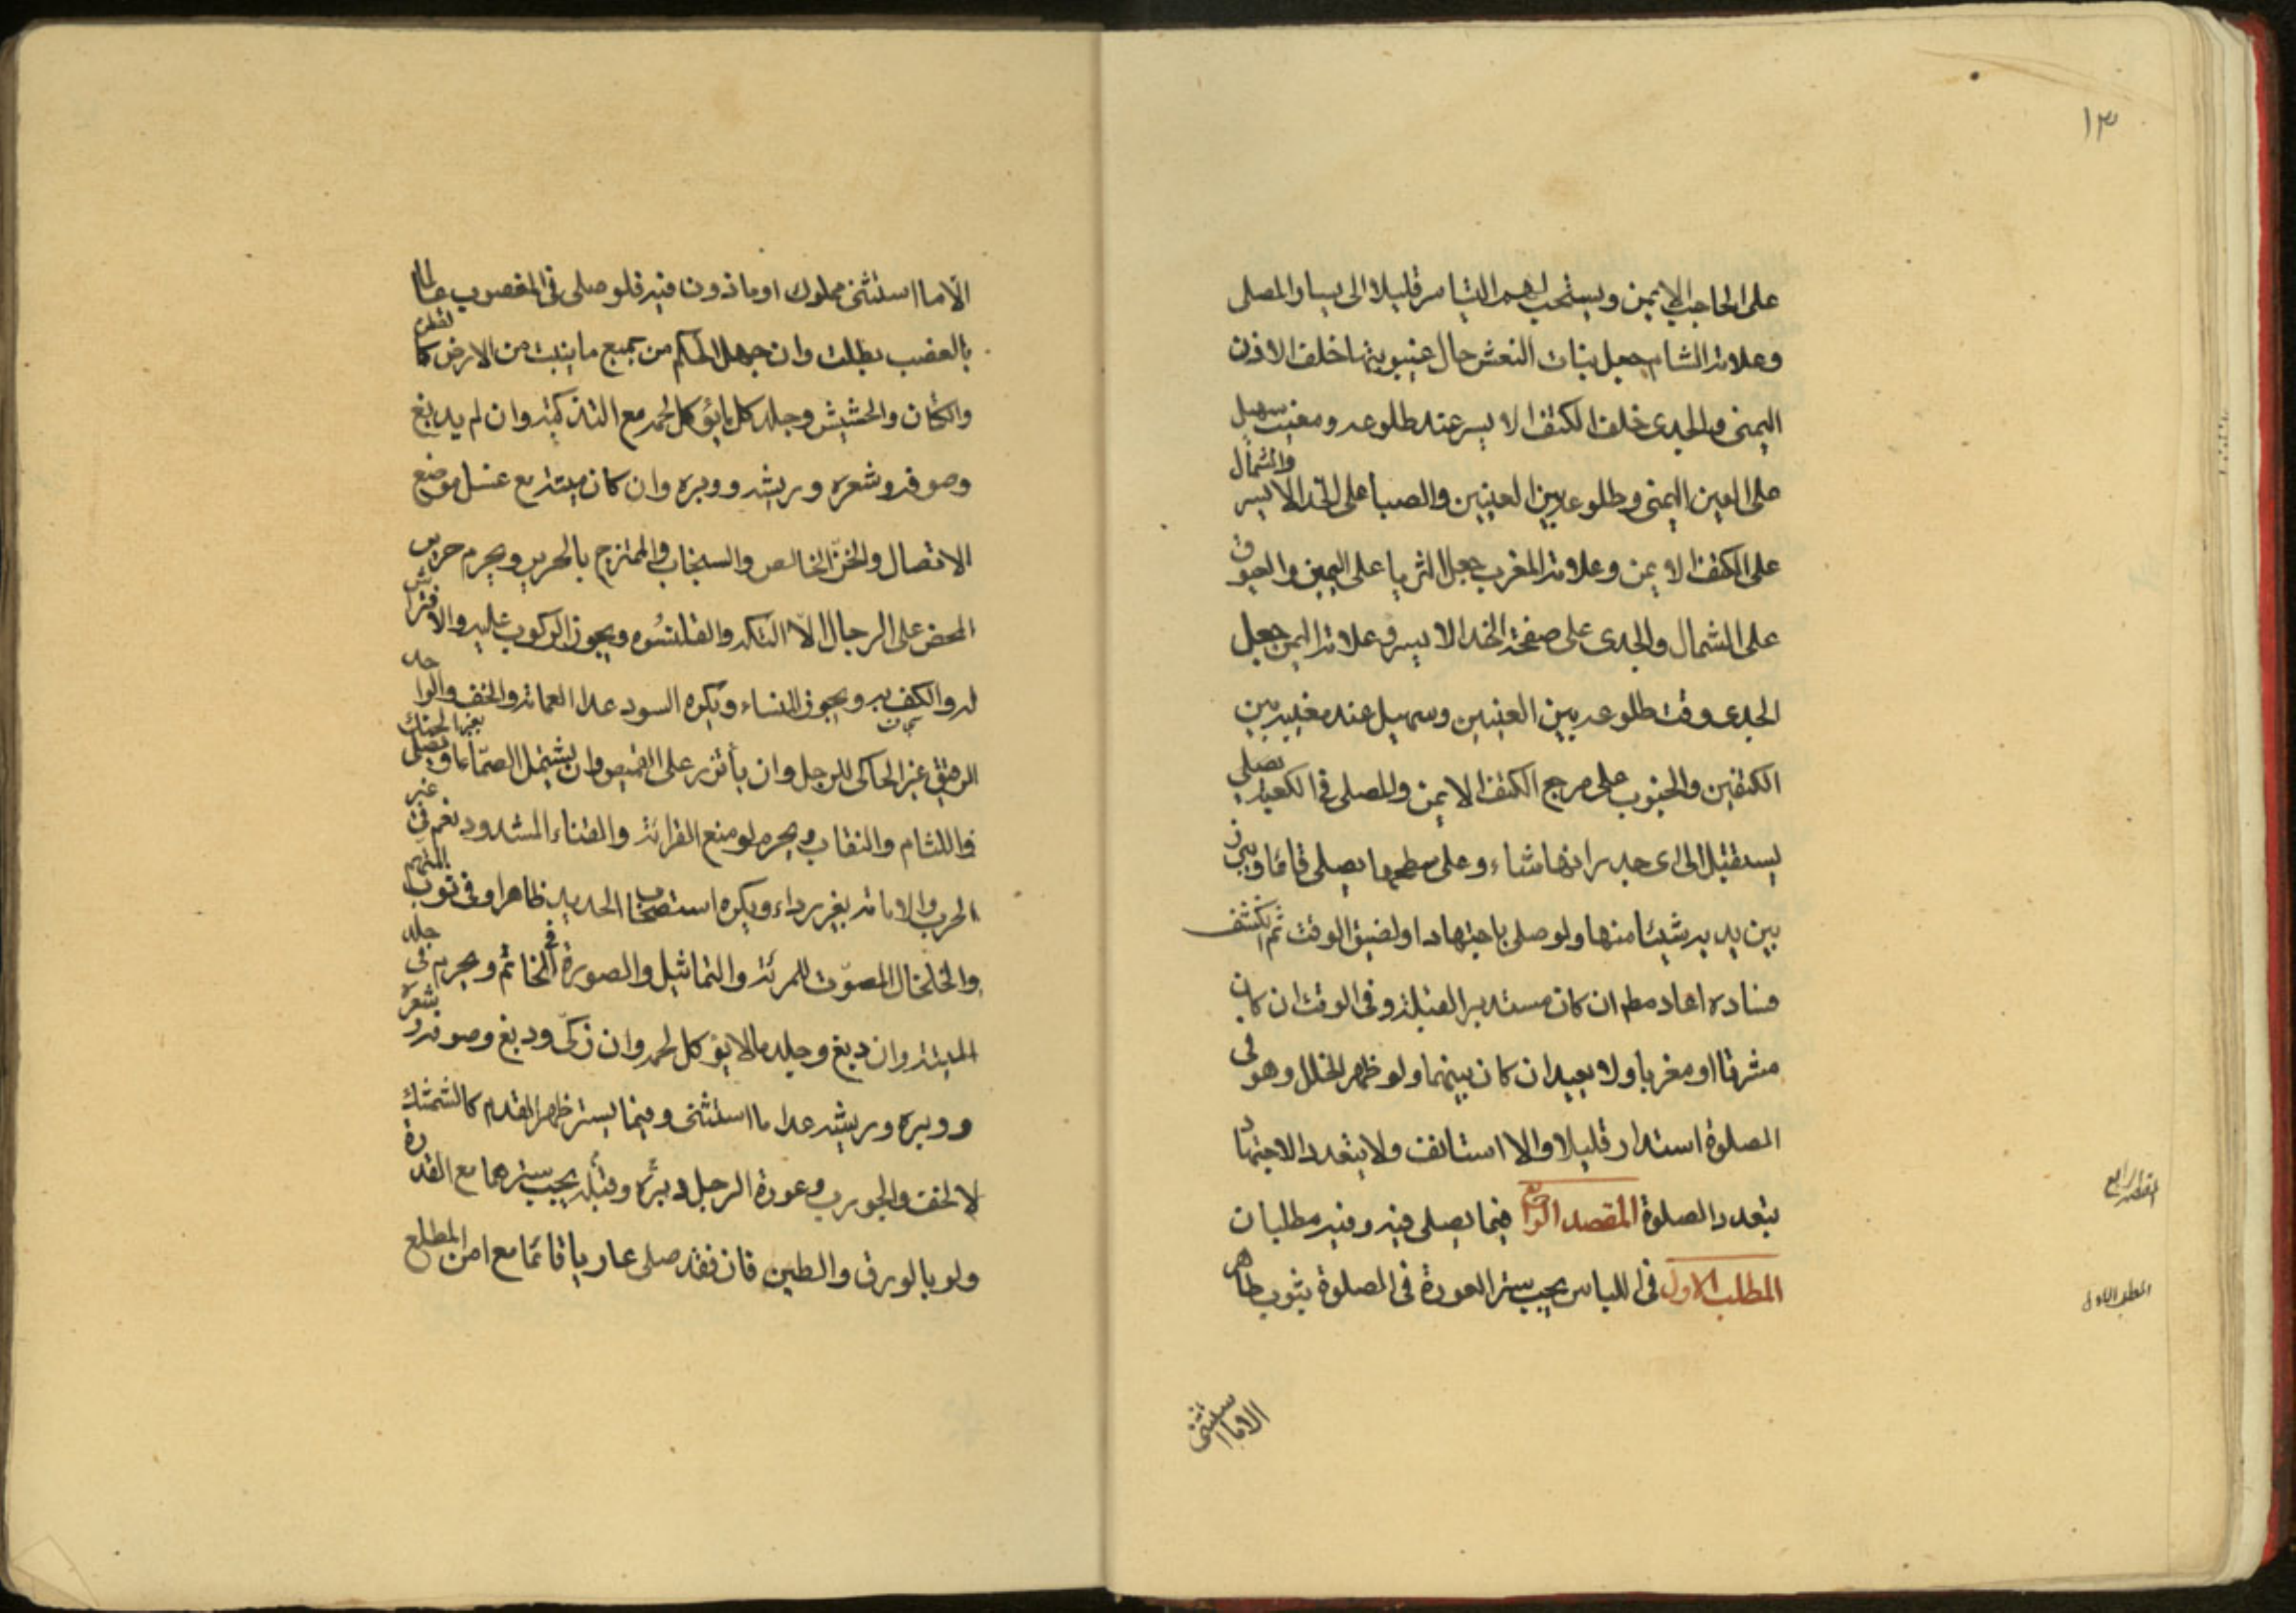 ١٣
على الحاجب الايمن ويستحب لهم التياسر قليلا الى يسار المصلى
وعلامة الشام جعل بنات النعش حال غيبوبتها خلف الاذن
اليمنى والجدى خلف الكتف الايسر عند طلوعه ومغيب سهيل
على العين اليمنى وطلوعه بين العينين والصبا على الخد الايسر والشمال
على الكتف الايمن وعلامة المغرب جعل الثريا على اليمين والعيوق
على الشمال والجدى على صفحة الخد الايسر وعلامة اليمن جعل
الجدى وقت طلوعه بين العينين وسهيل عند مغيبه بين
الكتفين والجنوب على مرجع الكتف الايمن والمصلى فى الكعبة يصلى
يستقبل الى اى جدرانها شاء وعلى سطحها يصلى قائما ويبرز
بين يديه شيئا منها ولو صلى باجتهاد او لضيق الوقت ثم انكشف
فساده اعاد مطم ان كان مستدبر القبلة وفى الوقت ان كان
مشرقا او مغربا ولا يعيد ان كان بينهما ولو ظهر الخلل وهو فى
الصلوة استدار قليلا والا استانف ولا يتعدد الاجتهاد
بتعدد الصلوة المقصد الرابع فيما يصلى فيه وفيه مطلبان
المطلب الاول فى اللباس يجب ستر العورة فى الصلوة بثوب طاهر
المقصد الرابع
المطلب الاول
الا ما استثنى
الا ما استثنى مملوك او ماذون فيه فلو صلى فى المغصوب عالما
بالغصب بطلت وان جهل الحكم من جميع ما ينبت من الارض كالقطن
والكتان والحشيش وجلد كل ما يؤكل لحمه مع التذكية وان لم يدبغ
وصوفه وشعره وريشه ووبره وان كان ميتة مع غسل موضع
الاتصال والخز الخالص والسنجاب والممتزج بالحرير ويحرم حرير
المحض على الرجال الا التكه والقلنسوه ويجوز الركوب عليه والافتراش
له والكف به ويجوز للنساء ويكره السود عدا العمامة والخف والواحد
الرقيق غير الحاكى للرجل وان يأتزر على القميص وان يشتمل الصماء او يصلى بغير الحنك
واللثام والنقاب ويحرم لو منع القرائة والقباء المشدود نعم فى غير
الحرب والامامة بغير رداء ويكره استصحاب الحديد ظاهرا وفى ثوب المتهم
والخلخال المصوت للمرئة والتماثيل والصورة فى الخاتم ويحرم فى جلد
الميتة وان دبغ وجلد ما لا يؤكل لحمه وان ذكى ودبغ وصوفه وشعره
ووبره وريشه عدا ما استثنى وفيما يستر ظهر القدم كالشمشك
لا الخف والجورب وعورة الرجل دبره وقبله يجب سترهما مع القدرة
ولو بالورق والطين فان فقد صلى عاريا قائما مع امن المطلع